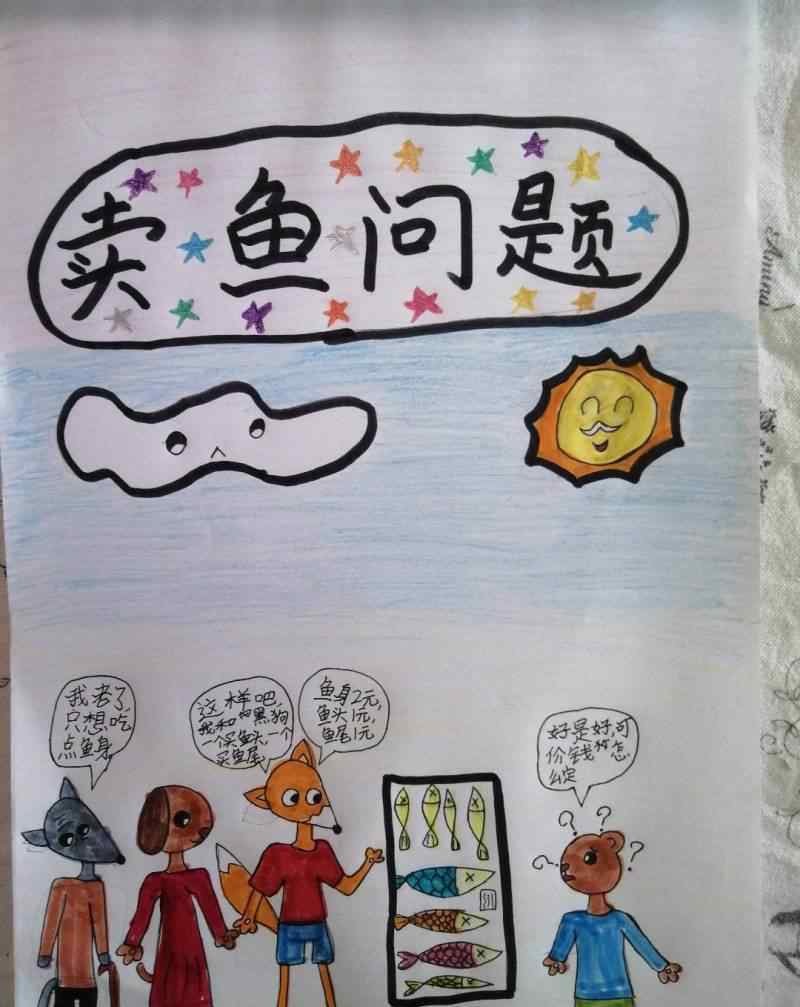 卖鱼问题
我老了
只想吃
点鱼身
这样吧,
我和黑狗
一个买鱼头,一个
买鱼尾
鱼身2元,
鱼头1元,
鱼尾1元
好是好,可
价钱怎
么定